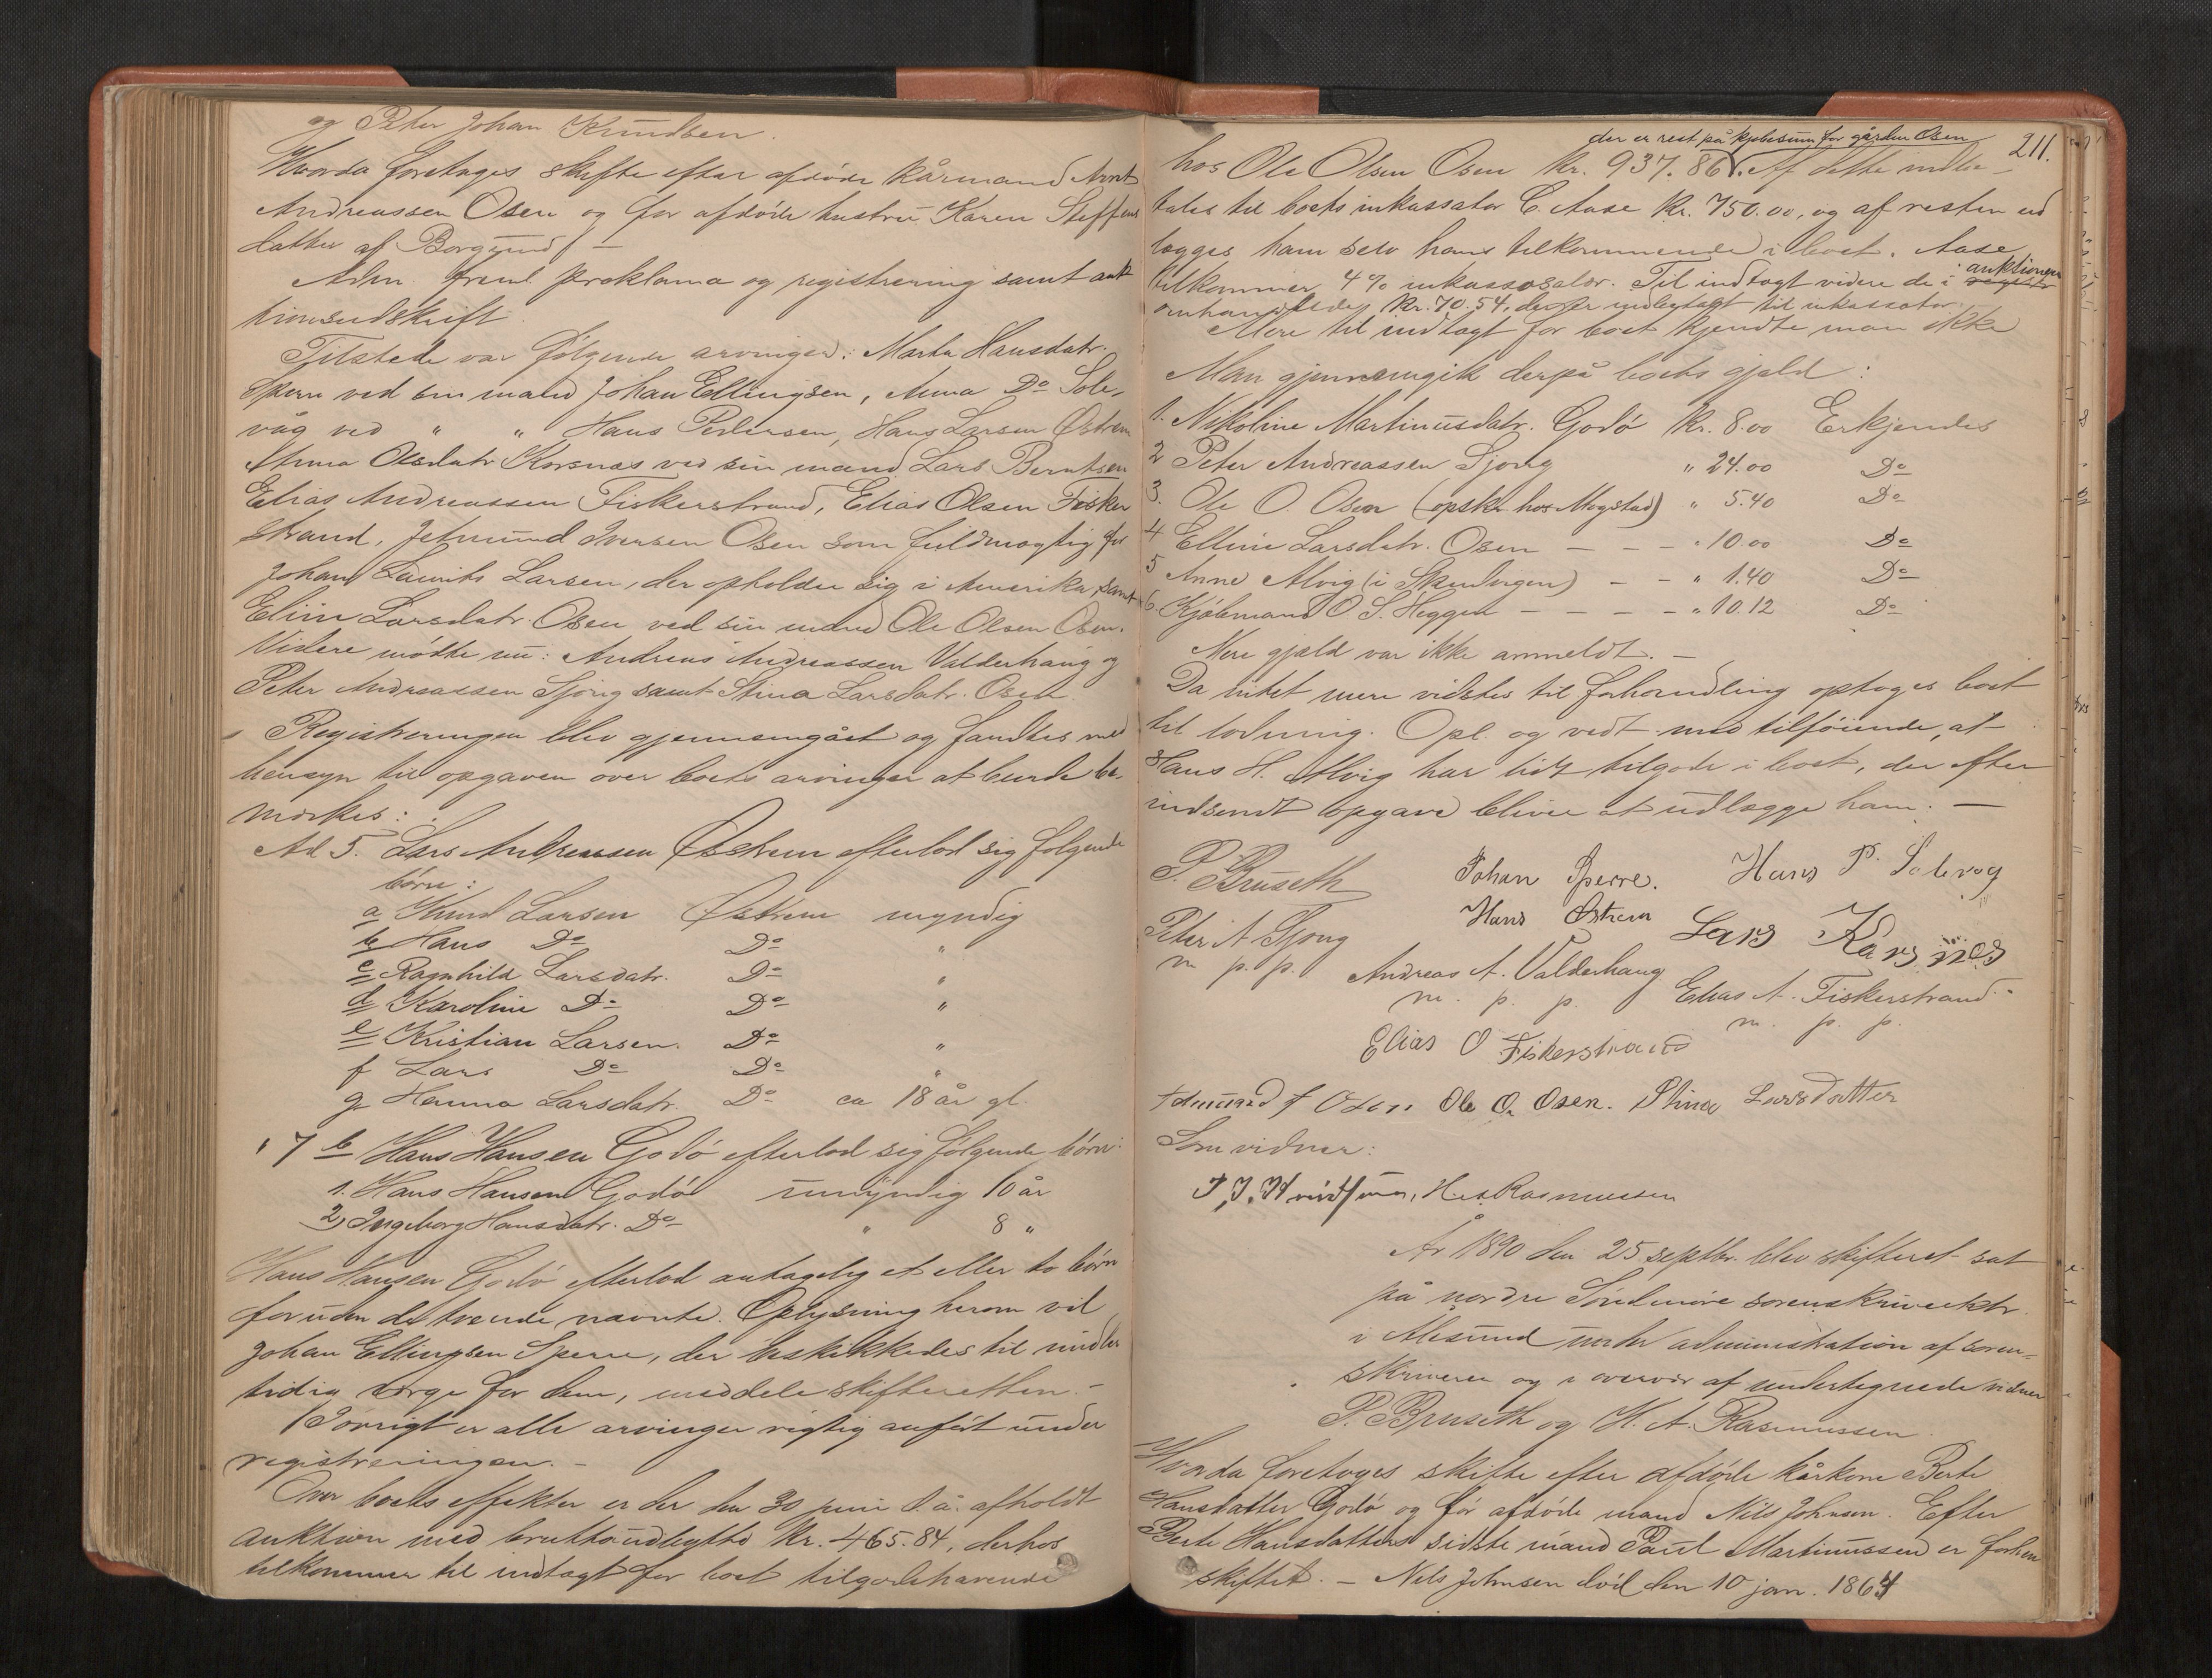 og Peter Johan Knudsen.
Hvorda foretoges skifte efter afdøde kårmand Arnt
Andreassen Osen og før afdøde hustru Karen Steffens
datter af Borgund. —
Adm. freml. proklama og registrering samt auk
tionsudskrift.
Tilstede var følgende arvinger: Marta Hansdatr.
Sperre ved sin mand Johan Ellingsen, Anna Do Sole-
våg ved " " Hans Pedersen, Hans Larsen Østrem
Anna Olsdatr Korsnæs ved sin mand Lars Berntsen
Elias Andreassen Fiskerstrand, Elias Olsen Fisker
strand, Jetmund Iversen Osen som fuldmægtig for
Johan Laurits Larsen, der opholder sig i Amerika, samt
Eline Larsdatr. Osen ved sin mand Ole Olsen Osen.
Videre mødte nu: Andreas Andreassen Valderhaug og
Peter Andreassen Sjong samt Stina Larsdatr. Osen.
Registreringen blev gjennemgået og fandtes med
hensyn til opgaven over boets arvinger at burde be-
mærkes:
Ad 5. Lars Andreassen Østrem efterlod sig følgende
børn:
a Knud Larsen Østrem myndig
b Hans Do Do "
c Ragnhild Larsdatr. Do "
d Karoline Do Do "
e Kristian Larsen. Do "
f Lars Do Do "
g Hanna Larsdatr. Do ca 18 år gl.
" 7 b Hans Hansen Godø efterlod sig følgende børn:
1. Hans Hansen Godø umyndig 10 år
2, Ingeborg Hansdatr. Do " 8 "
Hans Hansen Godø efterlod antagelig et eller to børn
foruden de tvende nævnte. Oplysning herom vil
Johan Ellingsen Sperre, der beskikkedes til midler
tidig værge for dem, meddele skifteretten. —
Iøvrigt er alle arvinger rigtig anført under
registreringen. —
Over boets effekter er der den 30 juni d.å. afholdt
auktion med bruttoudbytte kr. 465.84, derhos
tilkommer til indtægt for boet tilgodehavende
211.
der er rest på kjøbesum for gården Osen
hos Ole Olsen Osen kr. 937.86. Af dette indbe-
tales til boets inkassator C. Aase kr. 750.00, og af resten ud
lægges ham selv hans tilkommende i boet. Aase
tilkommer 4 % inkassosalær. Til indtægt videre de i auktionen
omhandlede kr. 70.54, der er indbetalt til inkassator.
Mere til indtægt for boet kjendte man ikke
Man gjennemgik derpå boets gjæld:
1. Nikoline Martinusdatr. Godø kr. 8.00 Erkjendes
2 Peter Andreassen Sjong " 24.00 Do
3. Ole O. Osen (opskr. hos Mogstad) " 5.40 Do
4 Elline Larsdatr. Osen — — — " 10.00 Do
5 Anne Alvig (i Skudvegen) — — " 1.40 Do
6 Kjøbmand O. S. Heggen — — — — " 10.12 Do
Mere gjæld var ikke anmeldt. —
Da intet mere vidstes til forhandling optoges boet
til lodning. Opl. og vedt. med tilføiende, at
Hans H. Alvig har lidt tilgode i boet, der efter
indsendt opgave bliver at udlægge ham. —
P. Bruseth Johan Sperre. Hans P. Solevog
Peter A Sjong Hans Østrem Lars Karsnes
m. p. p. Andreas A. Valderhaug
m. p. p. Elias A. Fiskerstrand
m. p. p.
Elias O Fiskerstrand
Jetmund I Osen Ole O. Osen. Stina Larsdatter
Som vidner:
P. J. Knudsen, H. A. Rasmussen
År 1890 den 25 septbr. blev skifteret sat
på nordre Søndmøre sorenskriverktr.
i Ålesund under administration af soren-
skriveren og i overvær af undertegnede vidner
P. Bruseth og H. A. Rasmussen.
Hvorda foretoges skifte efter afdøde kårkone Berte
Hansdatter Godø og før afdøde mand Nils Johnsen. Efter
Berte Hansdatters sidste mand Paul Martinussen er forhen
skiftet. — Nils Johnsen død den 10 jan. 1864